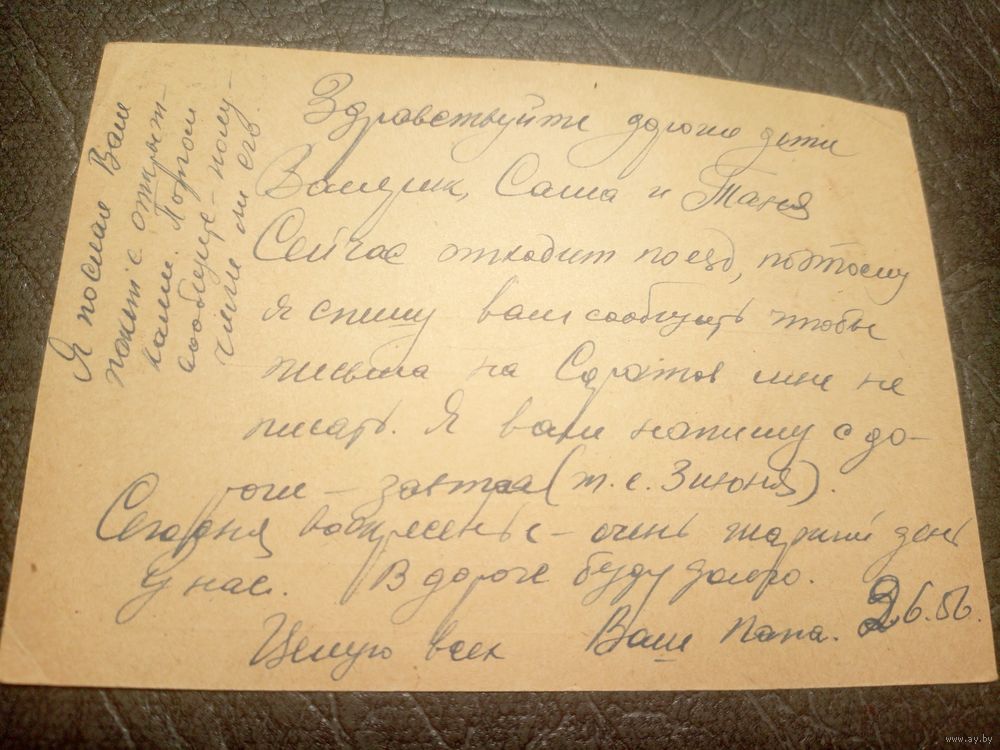 Здравствуйте дорогие дети
Валерик, Саша и Таня
Сейчас отходит поезд, поэтому
я спешу вам сообщить чтобы
письма на Саратов мне не
писать. Я вам напишу с до-
роги – завтра (т.е. 3 июня).
Сегодня воскресенье – очень жаркий день
у нас. В дороге буду долго.
Целую всех Ваш папа. 2.6.56.
Я послал Вам
пакет с открыт-
ками. Потом
сообщите – полу-
чили ли его.
www.ay.by